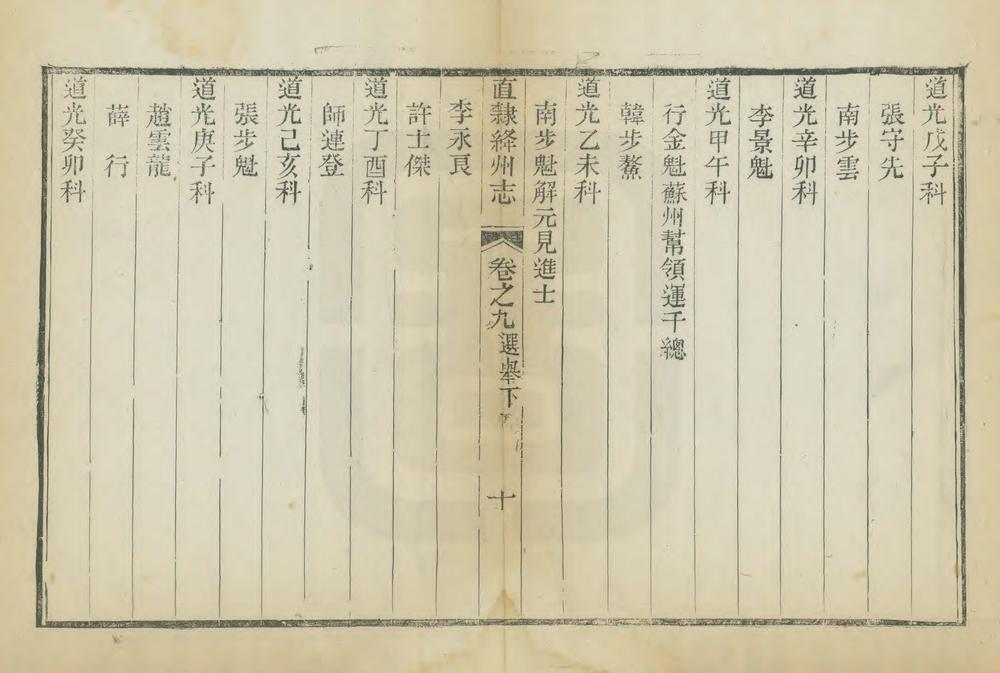 道光戊子科
張守先
南步雲
道光辛卯科
李景魁
道光甲午科
行金魁蘇州幫領運千總
韓步鰲
道光乙未科
南步魁解元見進士
直隸絳州志
卷之九選舉下
十
李永艮
許士傑
道光丁酉科
師連登
道光己亥科
張步魁
道光庚子科
趙雲龍
薛行
道光癸卯科